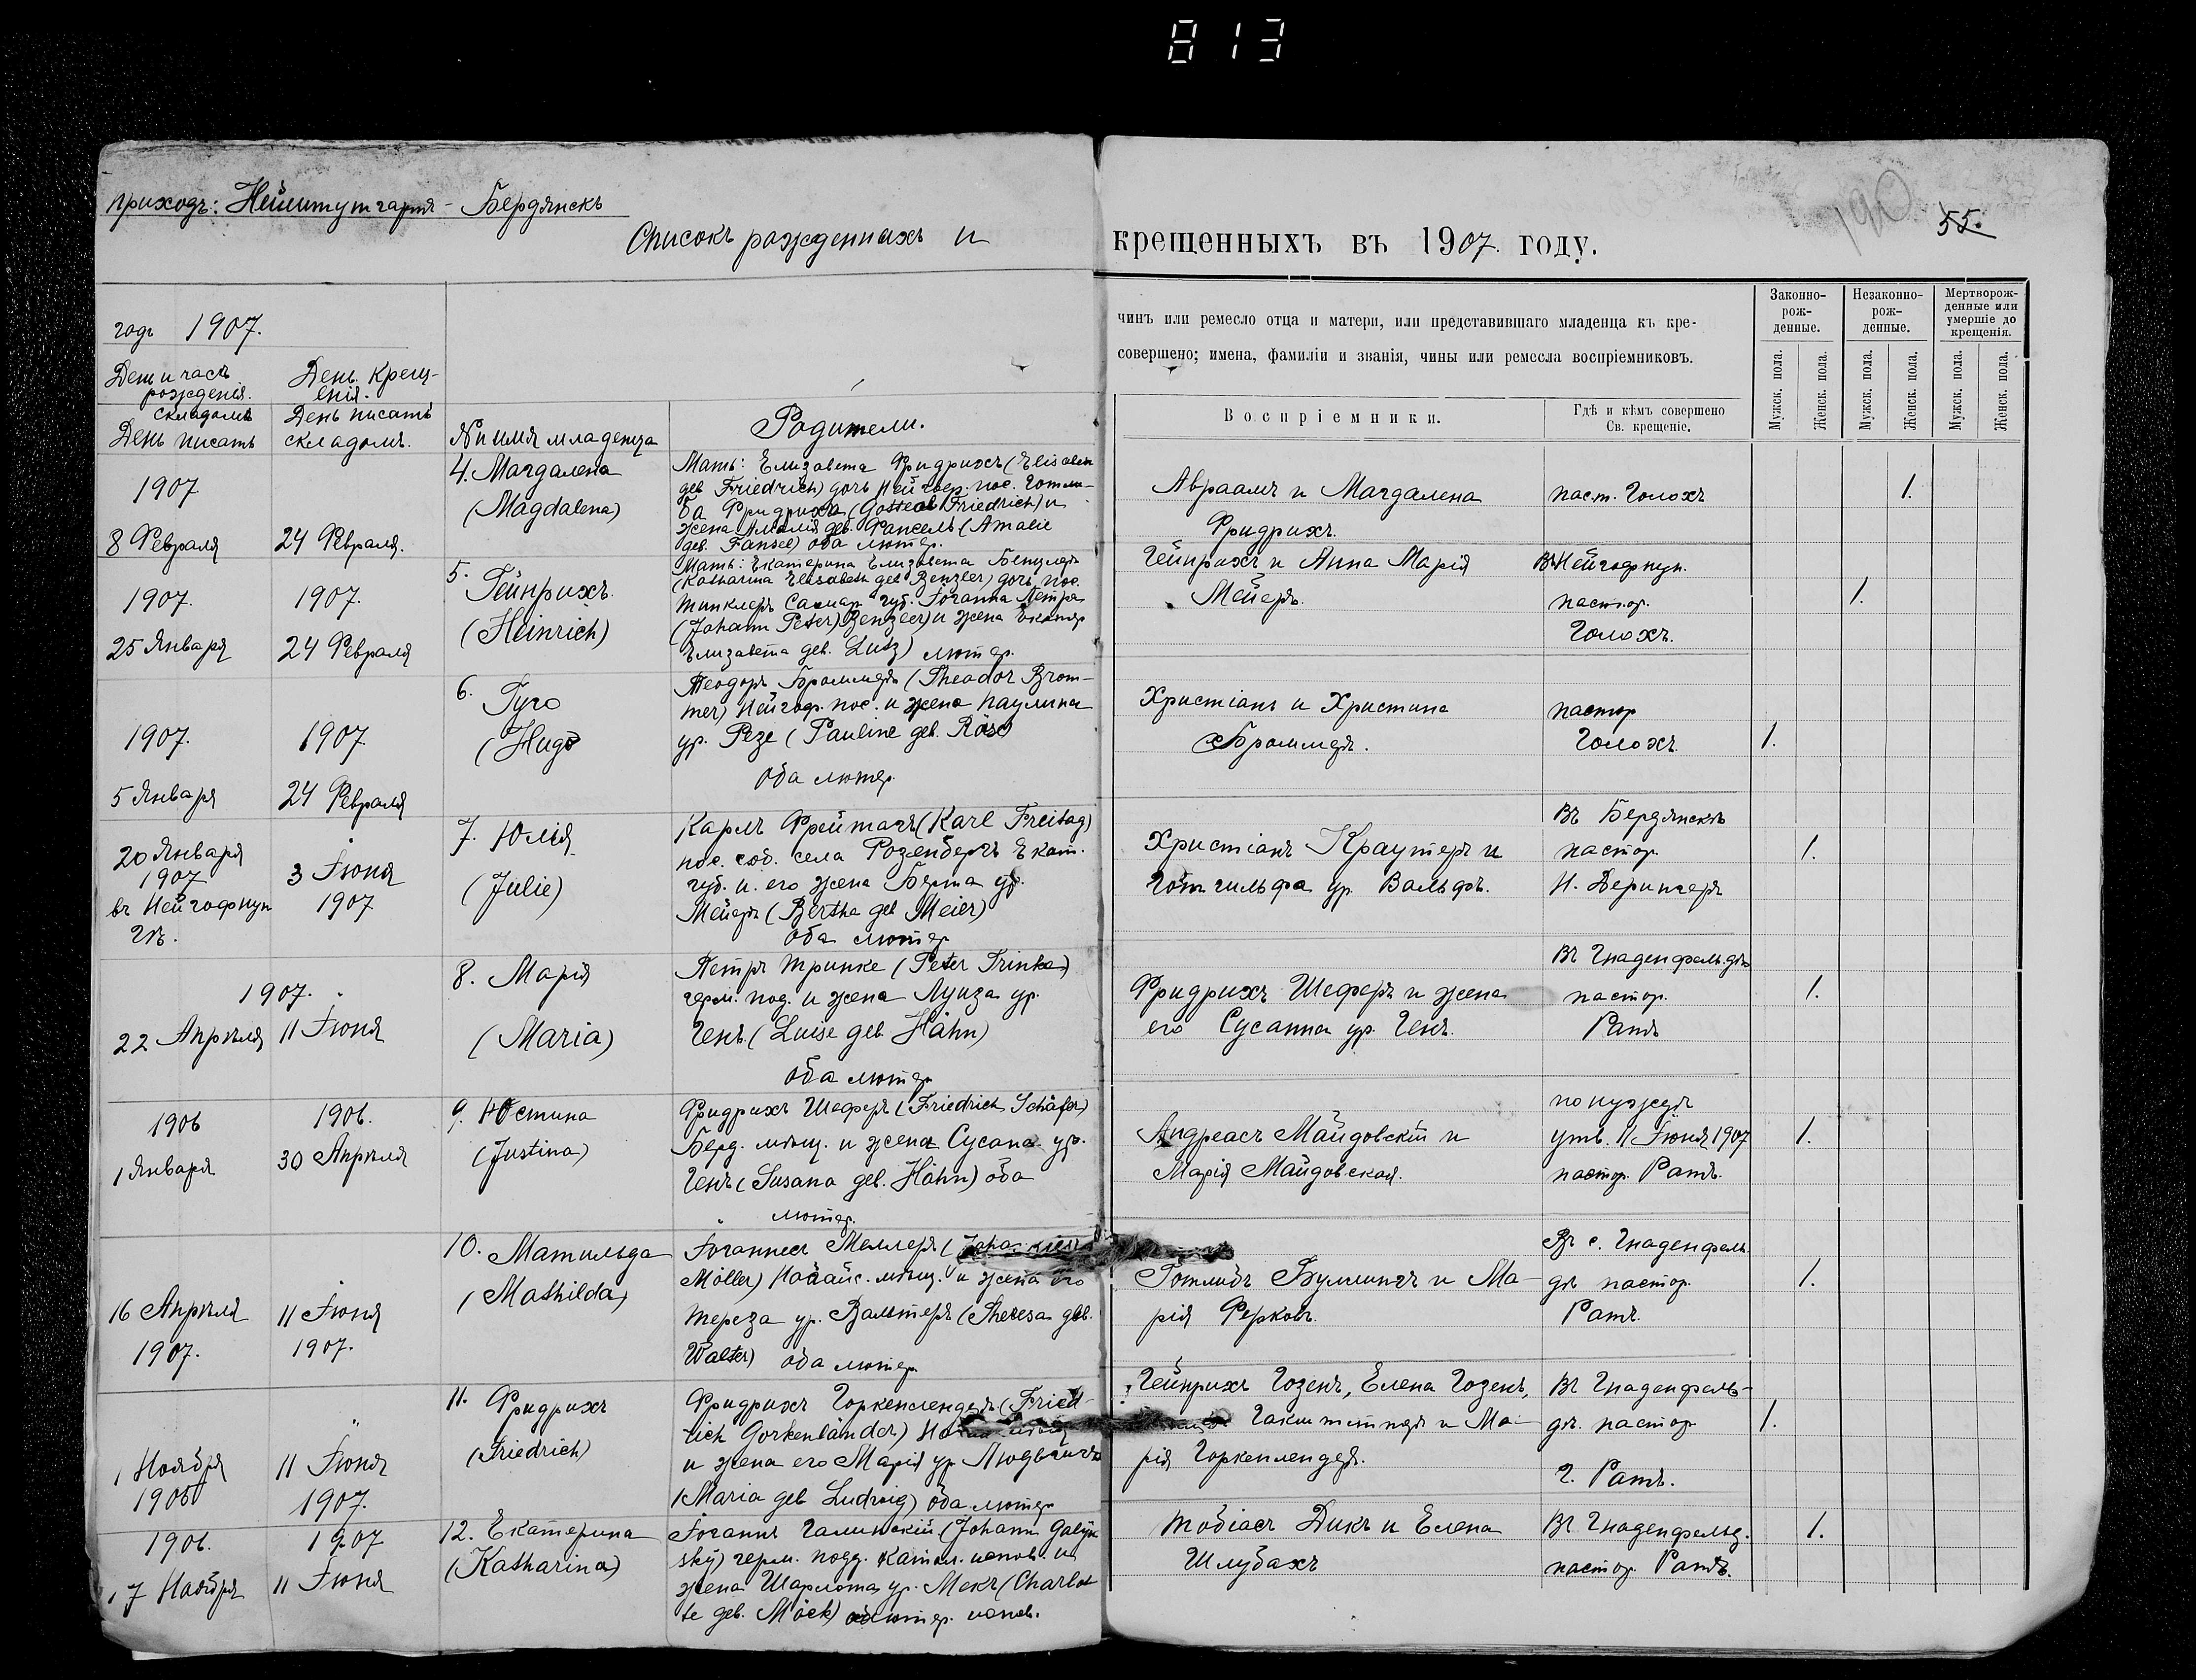 813
приходъ: Нейштутгартъ - Бердянскъ
Списокъ рожденныхъ и
крещенныхъ въ 1907. году.
190
55.
годъ 1907.
День и часъ
рожденія.
складомъ
День писать
День крещ-
енія.
День писать
складомъ.
№ и имя младенца
Родители.
чинъ или ремесло отца и матери, или представившаго младенца къ кре-
совершено; имена, фамиліи и званія, чины или ремесла воспріемниковъ.
Воспріемники.
Гдѣ и кѣмъ совершено
Св. крещеніе.
Законно-
рож-
денные.
Незаконно-
рож-
денные.
Мертворож-
денные или
умершіе до
крещенія.
Мужск. пола.
Женск. пола.
Мужск. пола.
Женск. пола.
Мужск. пола.
Женск. пола.
1907
8 Февраля
24 Февраля.
4. Магдалена
(Magdalena)
Мать: Елизавета Фридрихъ (Elisabeth
geb Friedrich) дочь Нейгоф. пос. Готли-
ба Фридриха (Gottlieb Friedrich) и
жена Амалія geb. Фансель (Amalie
geb. Fansel) оба лютер.
Авраамъ и Магдалена
Фридрихъ.
паст. Голохъ
1.
1907.
25 Января
1907.
24 Февраля
5.
Гейнрихъ.
(Heinrich)
Мать: Екатерина Елизавета Бенцлеръ
(Katharina Elisabeth geb Benzler) дочь пос.
Тинклеръ Самар. губ. Іоганна Петра
(Johann Peter) Benzler) и жена Екатер
Елизавета geb. Lutz) лютер.
Гейнрихъ и Анна Марія
Мейеръ.
Въ Нейгофнун.
пастор.
Голохъ.
1.
1907.
5 Января
1907
24 Февраля
6.
Гуго
(Hugo
Теодоръ Броммеръ (Theodor Brom-
mer) Нейгоф. пос. и жена Паулина
ур. Резе (Pauline geb. Röse)
оба лютер.
Христіанъ и Христина
Броммеръ.
пастор
Голохъ.
1.
20 Января
1907
въ Нейгофнун
гѣ.
3 Іюня
1907
7. Юлія
(Julie)
Карлъ Фрейтагъ (Karl Freitag)
пос. соб. села Розенбергъ Екат.
губ. и его жена Берта ур.
Мейеръ (Bertha geb Meier)
оба лютер
Христіанъ Краутеръ и
Готгильфа ур. Вальфъ.
Въ Бердянскѣ
пастор.
И. Дерингеръ
1.
1907.
22 Апрѣля
11 Іюня
8. Марія
(Maria)
Петръ Тринке (Peter Trinke)
герм. под. и жена Луиза ур.
Генъ (Luise geb. Hähn)
оба лютер
Фридрихъ Шеферъ и жена
его Сусанна ур. Генъ.
Въ Гнаденфельдѣ
пастор.
Ратъ
1.
1906
1 Января
1906.
30 Апрѣля
9. Юстина
(Justina)
Фридрихъ Шеферъ (Friedrich Schäfer)
Берд. мѣщ. и жена Сусана ур.
Генъ (Susana geb. Hähn) оба
лютер.
Андреасъ Майдовскій и
Марія Майдовская.
по нуждѣ
утв. 11 Іюня 1907
пастор. Ратъ.
1.
16 Апрѣля
1907.
11 Іюня
1907.
10. Матильда
(Mathilda)
Іоганнесъ Меллеръ (Johannes
Möller) Ногайс. мѣщ. и жена его
Тереза ур. Вальтеръ (Theresa geb.
Walter) оба лютер
Готлибъ Буллингъ и Ма-
рія Ферковъ.
Въ с. Гнаденфель
дѣ пастор.
Ратъ.
1.
1 Ноября
1906
11 Іюня
1907.
11. Фридрихъ
(Friedrich)
Фридрихъ Горкенлендеръ (Fried-
rich Gorkenländer)
и жена его Марія ур Людвигъ
(Maria geb Ludwig) оба лютер
Гейнрихъ Гозенъ, Елена Гозенъ,
и Ма-
рія Горкенлендеръ.
Въ Гнаденфель-
дѣ. пастор
Г. Ратъ.
1.
1906.
17 Ноября
1907
11 Іюня
12. Екатерина
(Katharina)
Іоганнъ Галинскій (Johann Galyn
sky) герм. подд. катол. испов. и
жена Шарлота ур. Мекъ (Charlot
te geb. Möck) лютер. испов.
Тобіасъ Дикъ и Елена
Шлубахъ
Въ Гнаденфельд.
пастор Ратъ.
1.